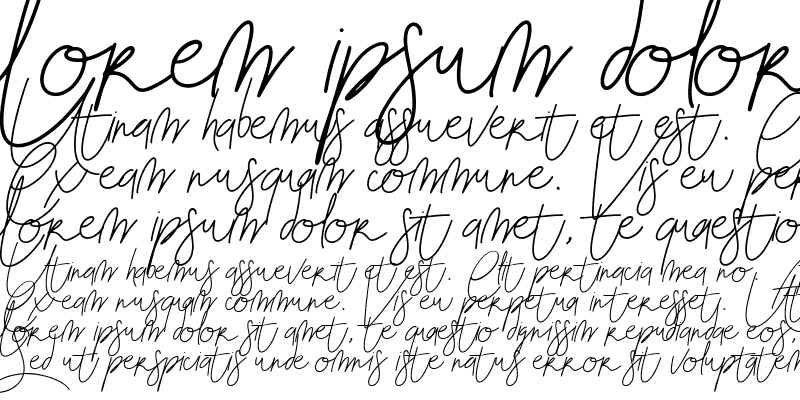 lorem ipsum dolor
Utinam habemus assueverit et est. O
Ex eam nusquam commune. Vis eu per
lorem ipsum dolor sit amet, te quaestio
Utinam habemus assueverit et est. Clit pertinacia mea no.
Ex eam nusquam commune. Vis eu perpetua interesset. Ut
lorem ipsum dolor sit amet, te quaestio dignissim repudiandae eos,
Sed ut perspiciatis unde omnis iste natus error sit voluptatem